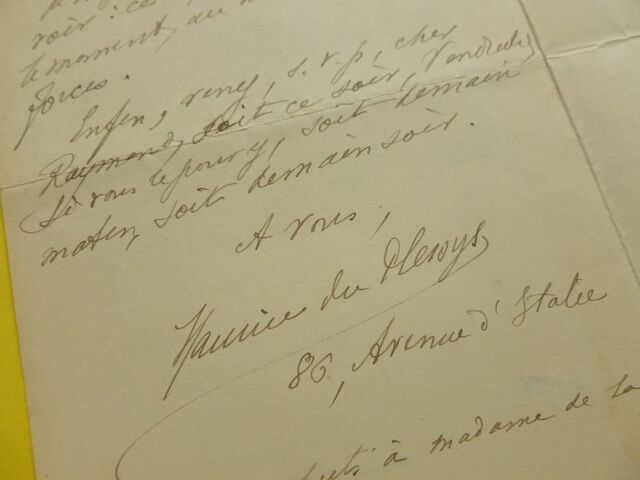 voir : ce
le moment, au
forces.
Enfin, venez, s.v.p, cher
Raymond, soit ce soir, Vendredi,
si vous le pouvez, soit demain
matin, soit demain soir.
A vous,
Maurice du Plessys
86, Avenue d'Italie
à madame de la